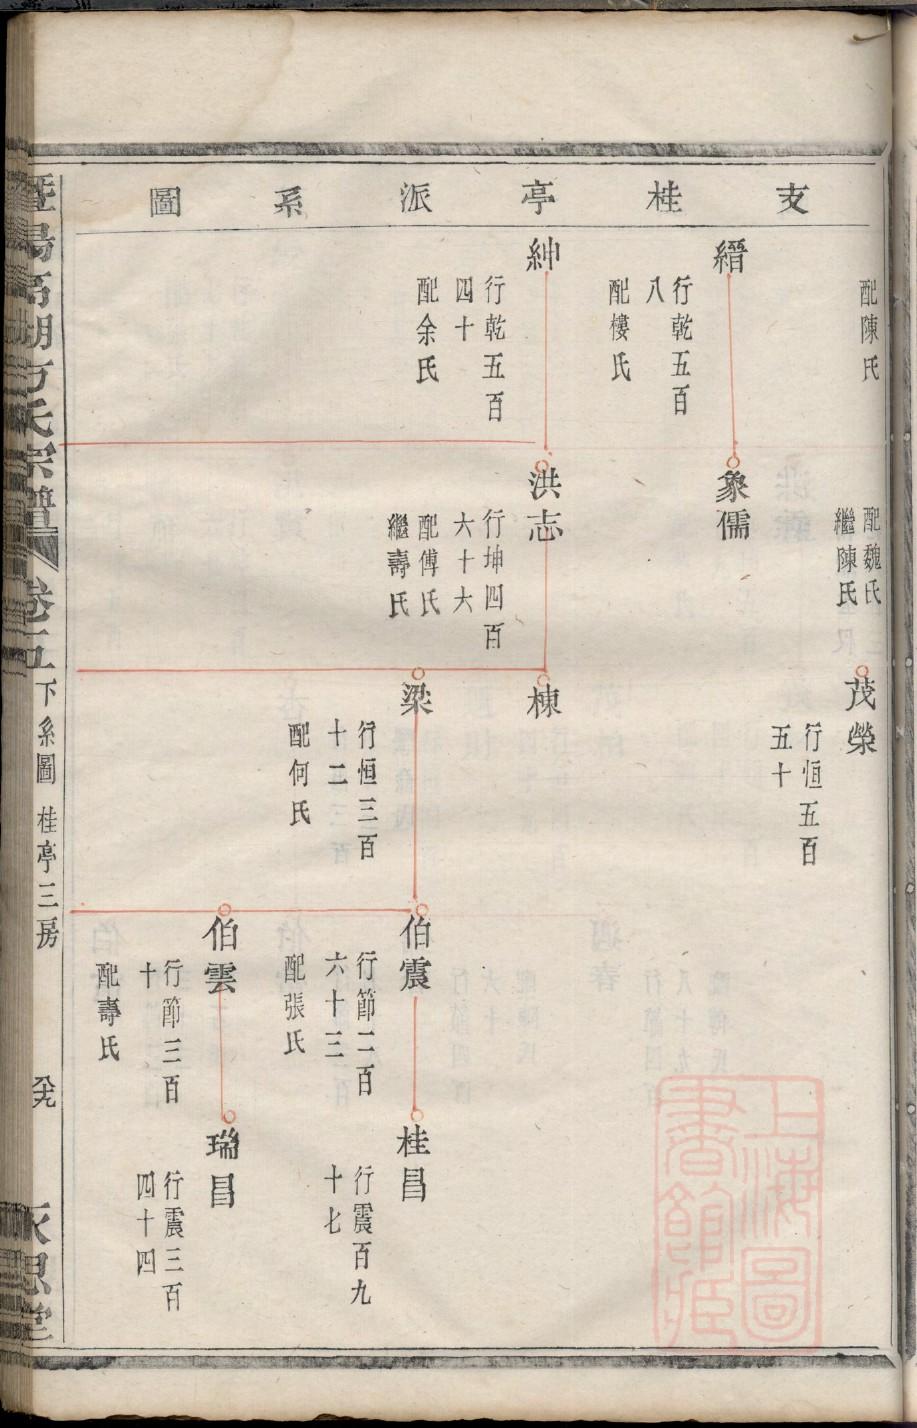 支桂亭派系圖
配陳氏
縉
行乾五百
八
配樓氏
紳
行乾五百
四十
配余氏
配魏氏
繼陳氏
象儒
洪志
行坤四百
六十六
配傅氏
繼壽氏
茂榮
行恒五百
五十
棟
梁
行恒三百
十二
配何氏
伯震
行節二百
六十三
配張氏
伯雲
行節三百
十
配壽氏
桂昌
行震百九
十七
瑞昌
行震三百
四十四
暨陽高湖方氏宗譜
卷五
下系圖 桂亭三房
思堂
上海圖
書館藏